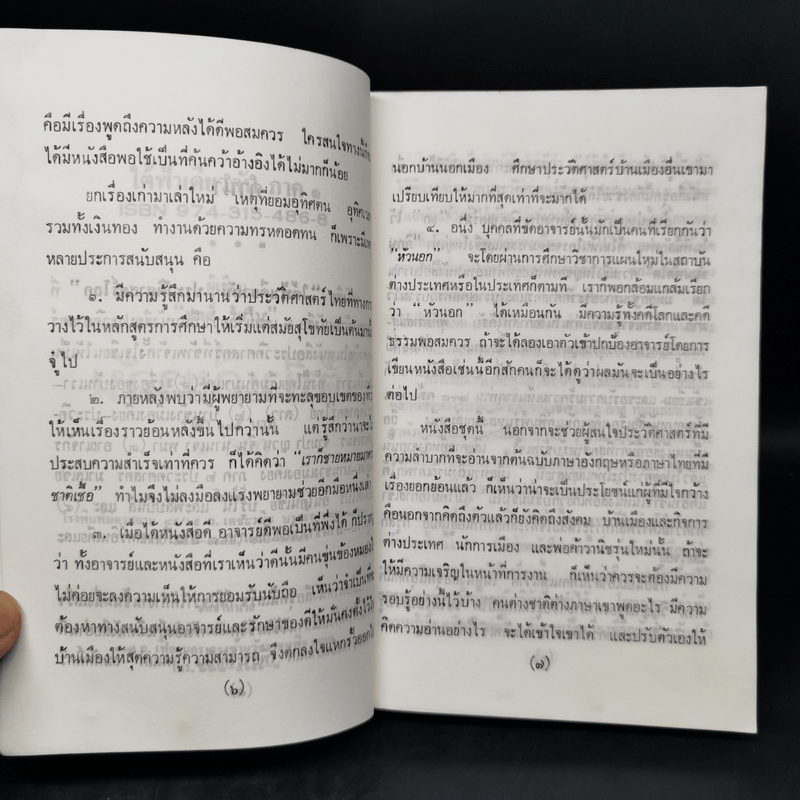 คือมีเรื่องพูดถึงความหลังได้ดีพอสมควร ใครสนใจทางนี้ก็
ได้มีหนังสือพอใช้เป็นที่ค้นคว้าอ้างอิงได้ไม่มากก็น้อย
ยกเรื่องเก่ามาเล่าใหม่ เหตุที่ยอมอุทิศตน อุทิศเวลา
รวมทั้งเงินทอง ทำงานด้วยความทรหดอดทน ก็เพราะมี
หลายประการสนับสนุน คือ
๑. มีความรู้สึกมานานว่าประวัติศาสตร์ไทยที่ทาง
วางไว้ในหลักสูตรการศึกษาให้เริ่มแต่สมัยสุโขทัยเป็นต้นมานั้น
จู๋ไป
๒. ภายหลังพบว่ามีผู้พยายามที่จะทะลุขอบเขตของ
ให้เห็นเรื่องราวย้อนหลังขึ้นไปกว่านั้น แต่รู้สึกว่าจะ
ประสบความสำเร็จเท่าที่ควร ก็ได้คิดว่า "เราก็ชายหมายมา
ชาติเชื้อ" ทำไมจึงไม่ลงมือลงแรงพยายามช่วยอีกมือหนึ่งเล่า
๓. เมื่อได้หนังสือดี อาจารย์ดีพอเป็นที่พึ่งได้ ก็ปรากฏ
ว่า ทั้งอาจารย์และหนังสือที่เราเห็นว่าดีนั้นมีคนขุ่นข้องหมอง
ไม่ค่อยจะลงความเห็นให้การยอมรับนับถือ เห็นว่าจำเป็นที่
ต้องหาทางสนับสนุนอาจารย์และรักษาของดีให้มั่นคงตั้งไว้ใน
บ้านเมืองให้สุดความรู้ความสามารถ จึงตกลงใจแหกรั้วออกไป
(๖)
นอกบ้านนอกเมือง ศึกษาประวัติศาสตร์บ้านเมืองอื่นเขามา
เปรียบเทียบให้มากที่สุดเท่าที่จะมากได้
๔. อนึ่ง บุคคลที่ขัดอาจารย์นั้นมักเป็นคนที่เรียกกันว่า
"หัวนอก" จะโดยผ่านการศึกษาวิชาการแผนใหม่ในสถาบัน
ต่างประเทศหรือในประเทศก็ตามที เราก็พอกล้อมแกล้มเรียก
ว่า "หัวนอก" ได้เหมือนกัน มีความรู้ทั้งคดีโลกและคดี
ธรรมพอสมควร ถ้าจะได้ลองเอาตัวเข้าปกป้องอาจารย์โดยการ
เขียนหนังสือเช่นนี้อีกสักคนก็จะได้ดูว่าผลมันจะเป็นอย่างไร
ต่อไป
หนังสือชุดนี้ นอกจากจะช่วยผู้สนใจประวัติศาสตร์ที่มี
ความลำบากที่จะอ่านจากต้นฉบับภาษาอังกฤษหรือภาษาไทยที่มี
เรื่องยอกย้อนแล้ว ก็เห็นว่าน่าจะเป็นประโยชน์แก่ผู้ที่มีใจกว้าง
คือนอกจากคิดถึงตัวแล้วก็ยังคิดถึงสังคม บ้านเมืองและกิจการ
ต่างประเทศ นักการเมือง และพ่อค้าวานิชรุ่นใหม่นั้น ถ้าจะ
ให้มีความเจริญในหน้าที่การงาน ก็เห็นว่าควรจะต้องมีความ
รอบรู้อย่างนี้ไว้บ้าง คนต่างชาติต่างภาษาเขาพูดอะไร มีความ
คิดความอ่านอย่างไร จะได้เข้าใจเขาได้ และปรับตัวเองให้
(๗)